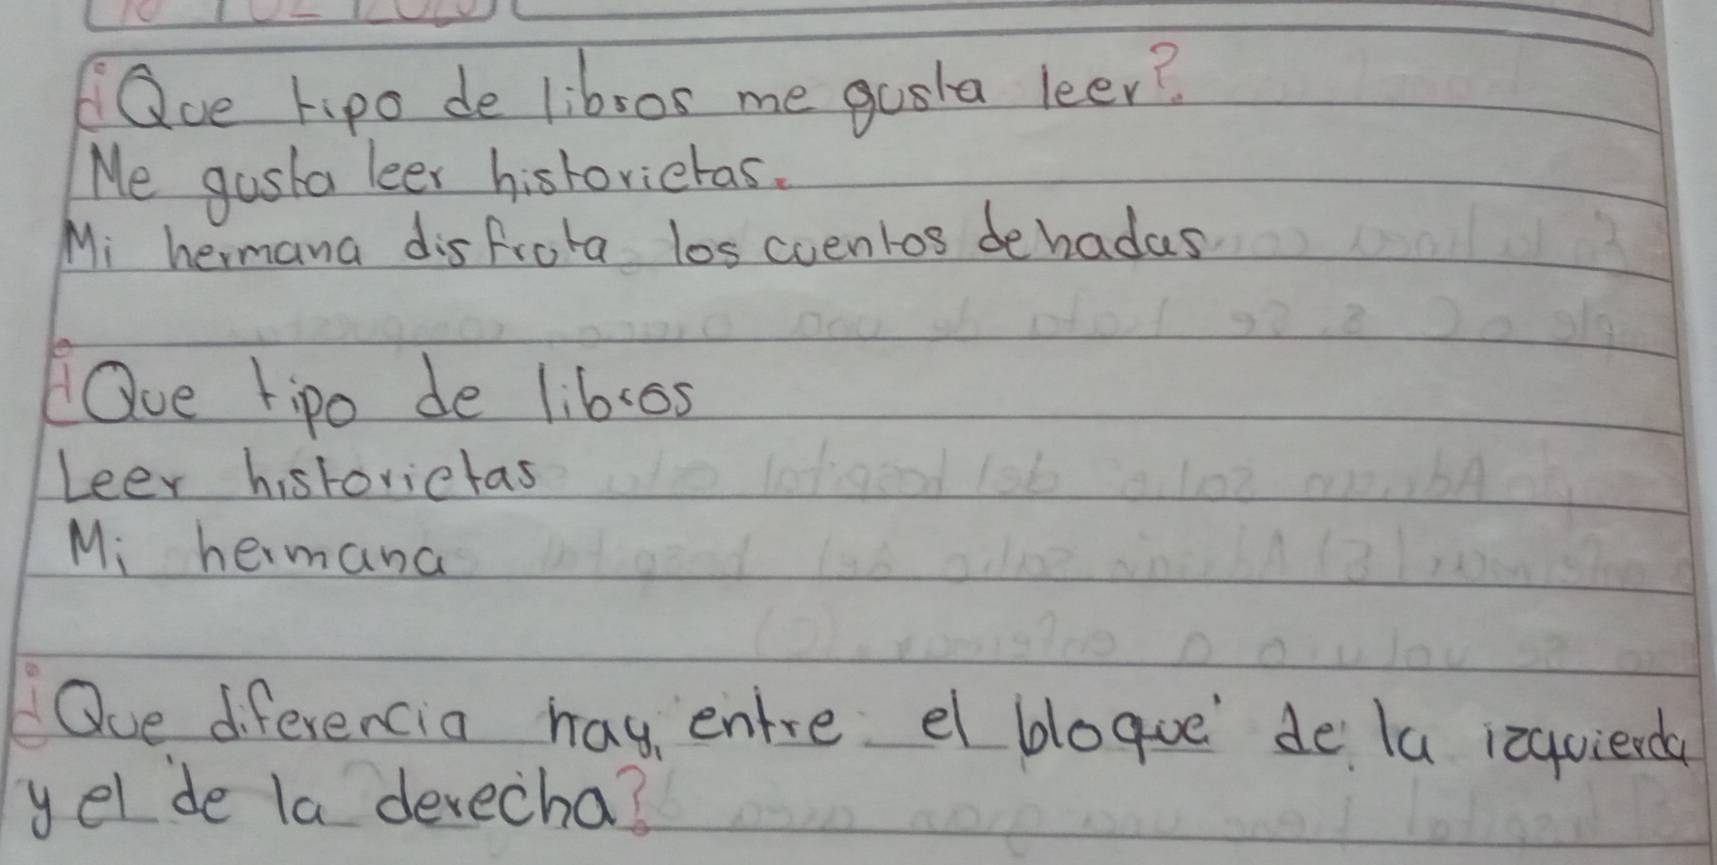 ¿Que tipo de libros me gusta leer?
Me gusta leer historietas.
Mi hermana disfruta los cuentos de hadas
¿Que tipo de libros
Leer historietas
Mi hermana
¿Que diferencia hay, entre el bloque de la izquierda
y el de la derecha?